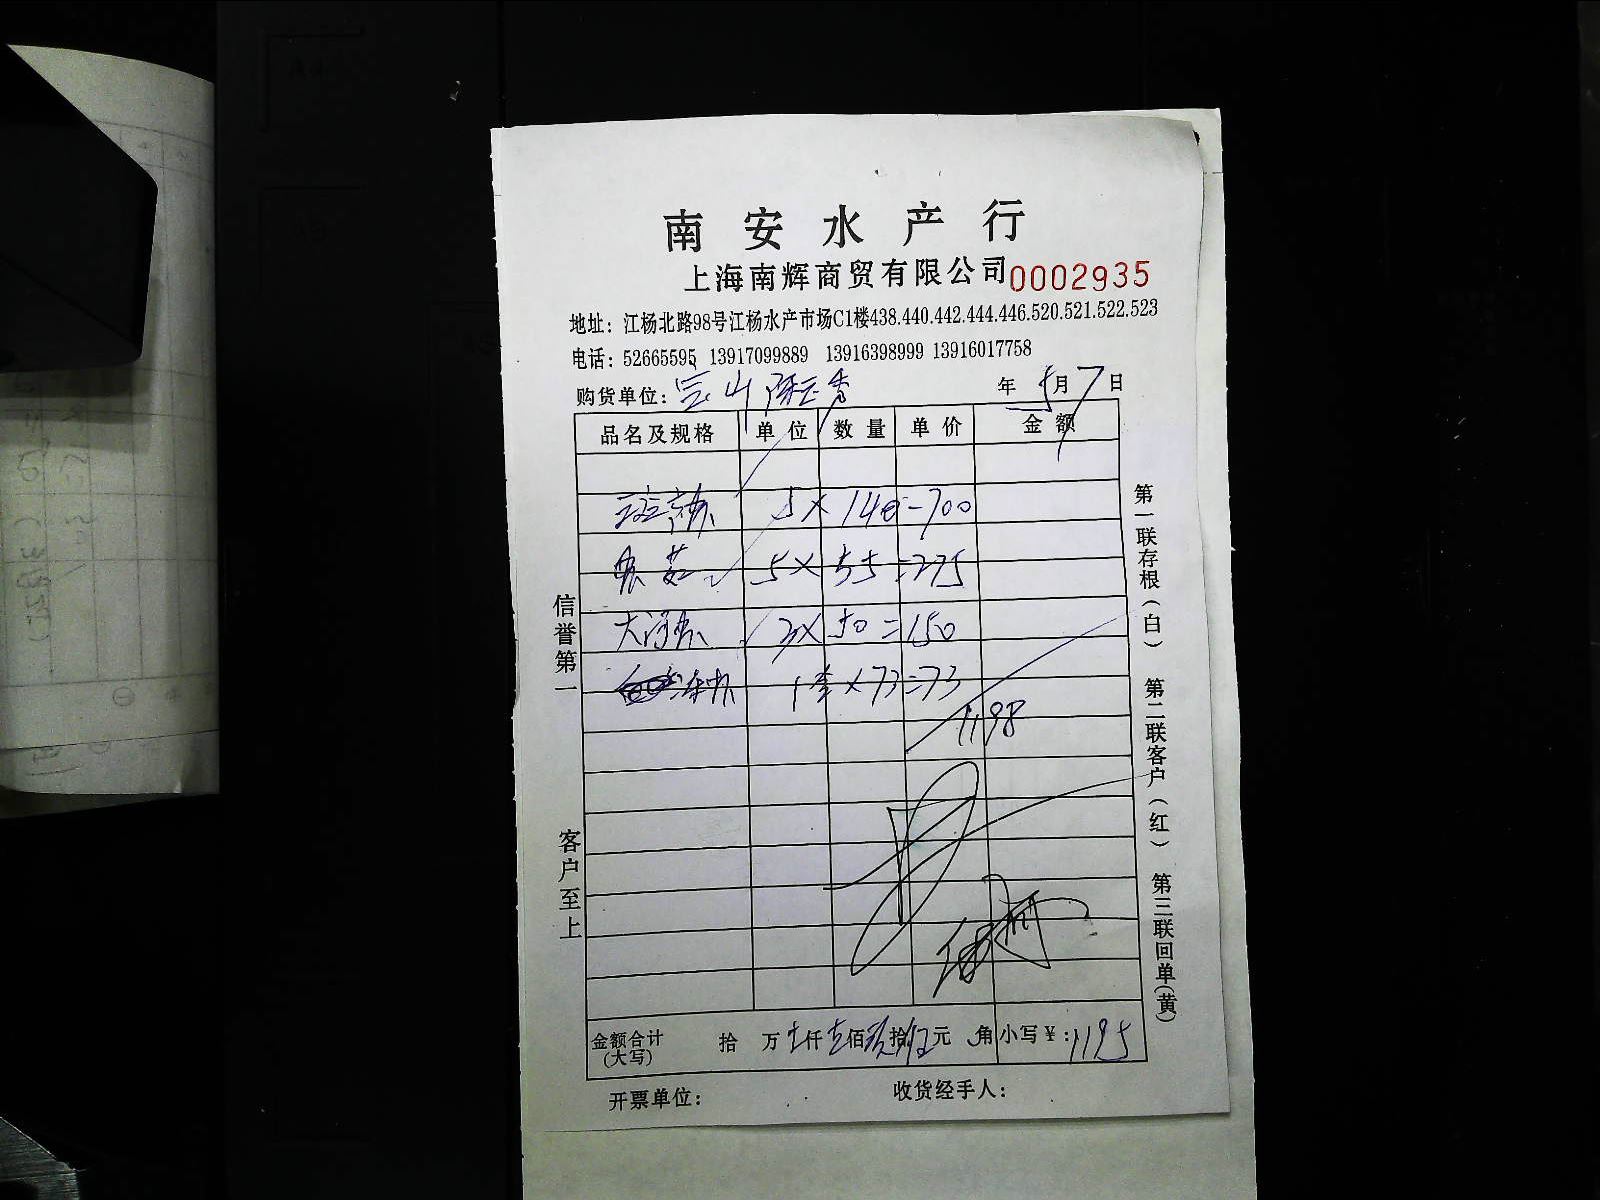 南安水产行
上海南辉商贸有限公司 0002935
地址：江杨北路98号江杨水产市场C1楼438.440.442.444.446.520.521.522.523
电话：52665595 13917099889 13916398999 13916017758
购货单位：宝山 年 5月7日
品名及规格 单位 数量 单价 金额
5×140=700
5×55=275
大 3×50=150
1 ×73=73
1198
金额合计(大写) 拾 万壹仟壹佰玖拾伍元 角 小写￥：1195
开票单位： 收货经手人：
信誉第一 客户至上
第一联存根(白) 第二联客户(红) 第三联回单(黄)